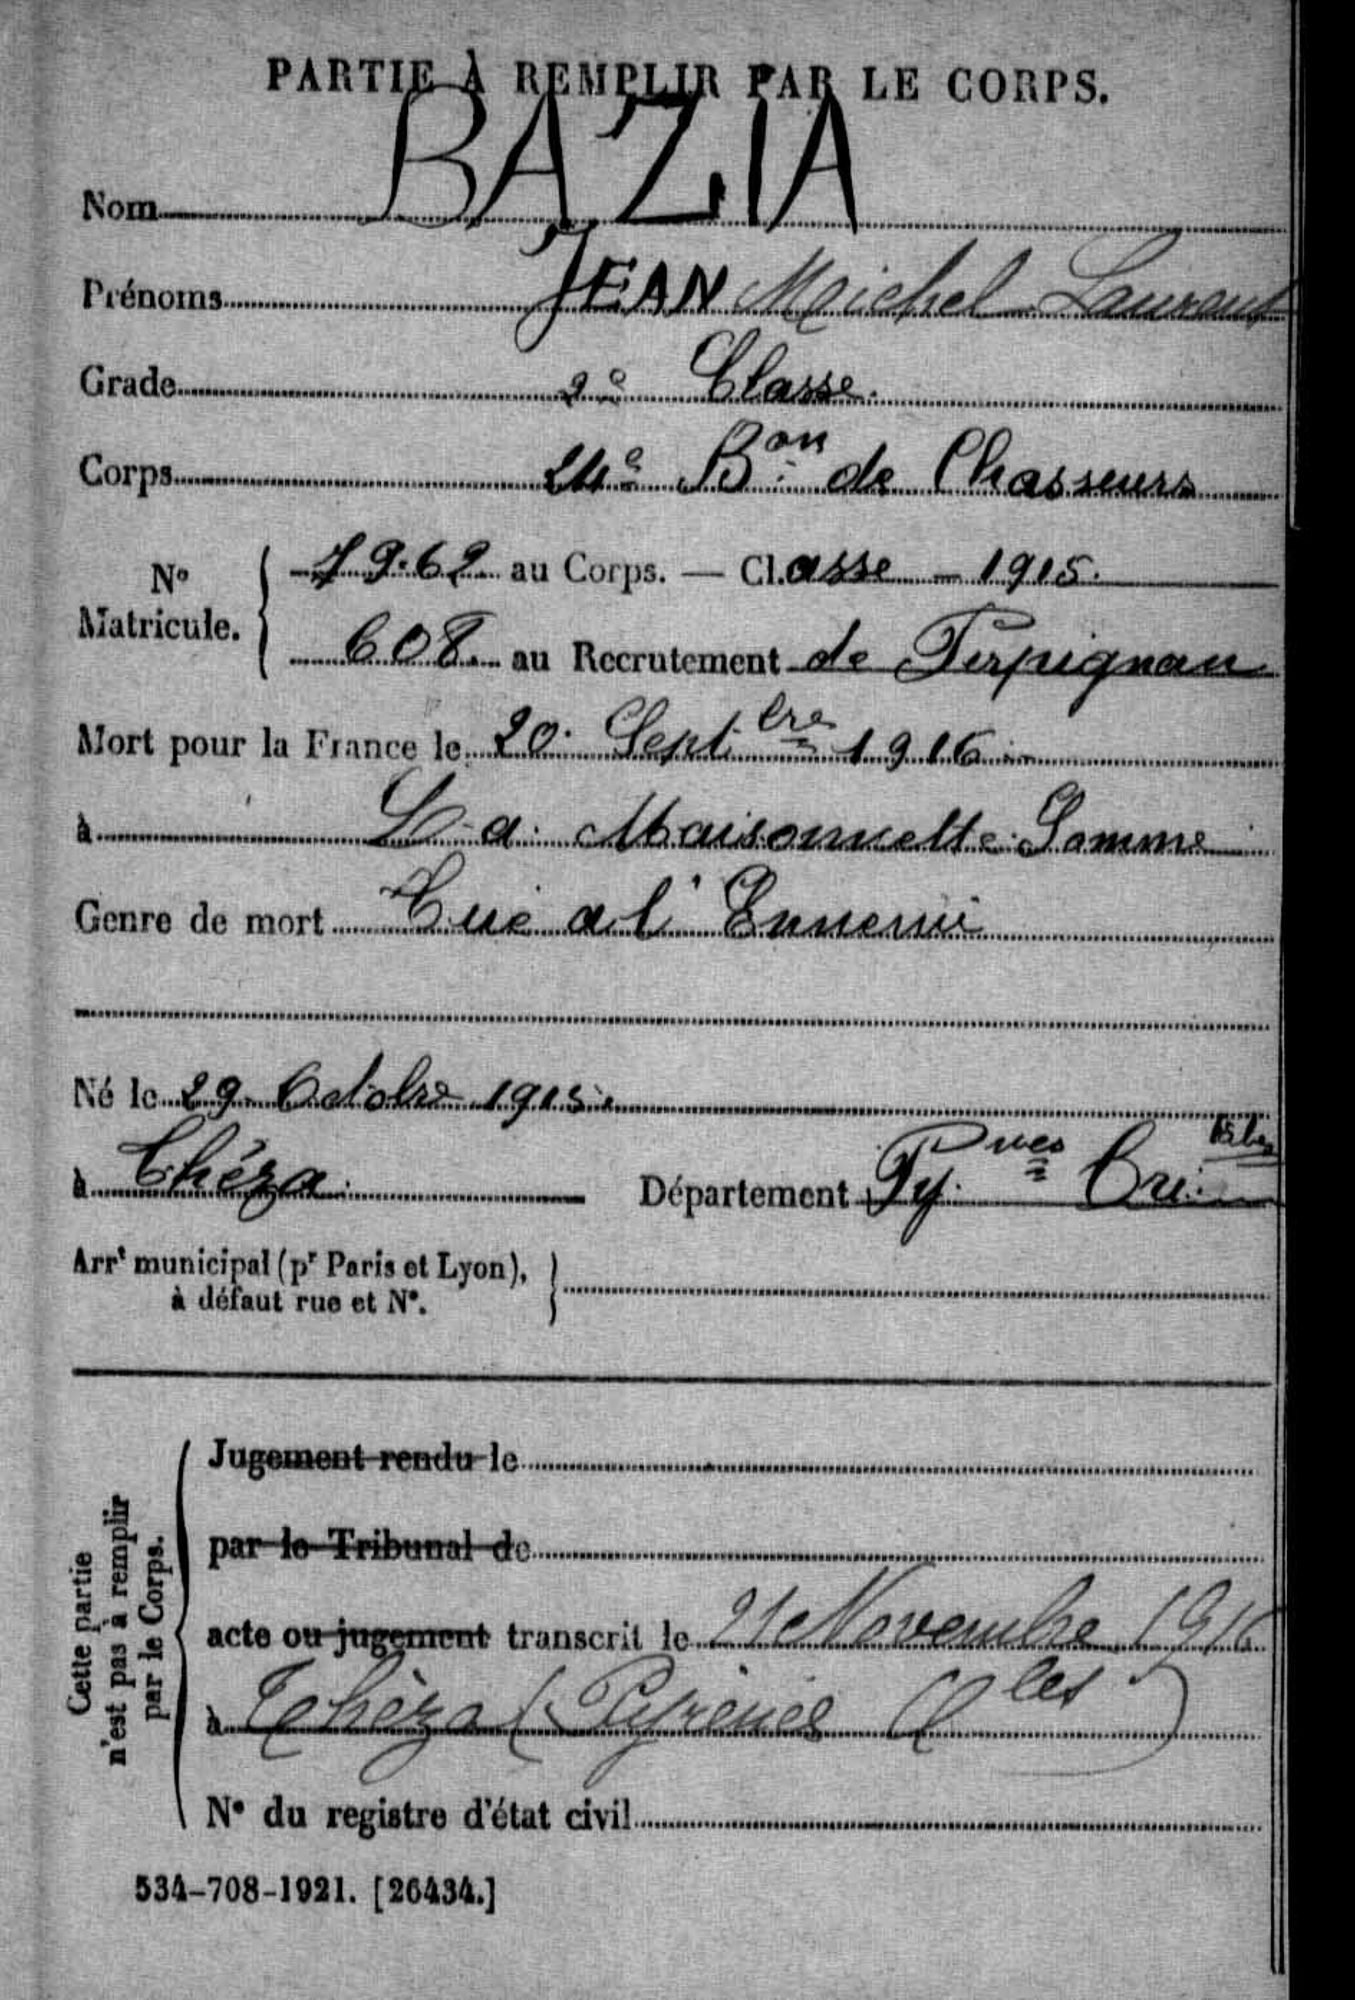 PARTIE À REMPLIR PAR LE CORPS.
Nom BAZIA
Prénoms JEAN Michel Laurent
Grade 2e Classe.
Corps 24e Bon de Chasseurs
No Matricule. { 7962 au Corps. — Cl.asse - 1915.
608. au Recrutement de Perpignan
Mort pour la France le 20 Septbre 1916
à La Maisonnette Somme
Genre de mort Tué a l'Ennemi
Né le 29 Octobre 1915.
à Théza Département Pyrnées Ori.tales
Arrt municipal (pr Paris et Lyon), à défaut rue et No. }
Cette partie n'est pas à remplir par le Corps.
Jugement rendu le
par le Tribunal de
acte ou jugement transcrit le 21 Novembre 1916
à Théza (Pyrénées Oles)
No du registre d'état civil
534-708-1921. [26434.]